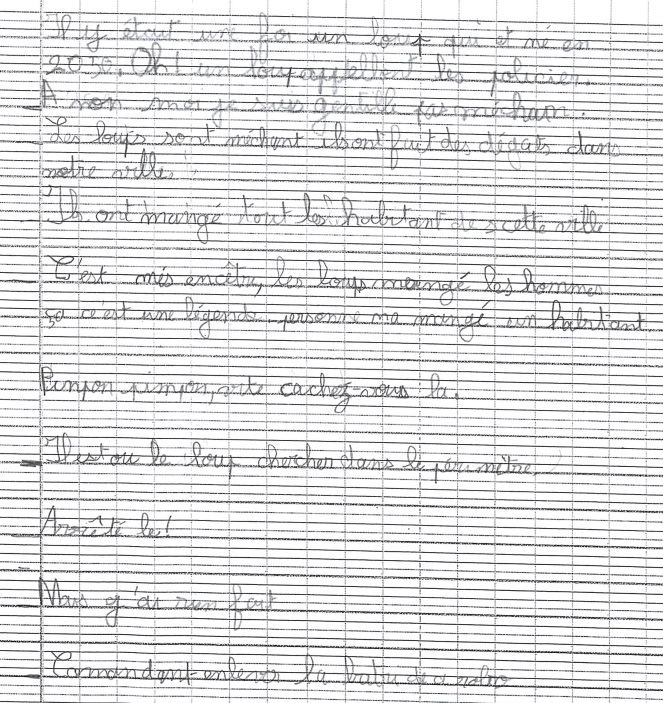 Il y était une foi un loup qui et né en
2050. Oh! un loup appellent les policier.
A non moi je suis gentille pas méchan.
Les loups sont méchant ils ont fait des dégats dans
notre ville.
Ils ont maingé tout les habitant de cette ville
C'est més encêtre, les loups maengé les hommes
ça c'est une légende personne na mangé un habitant
Pimpon pimpon, vite cachez-vous la.
Il est ou le loup chercher dans le périmètre.
Arrêté le!
Mais g'ai rien fait
Comandant enlever la